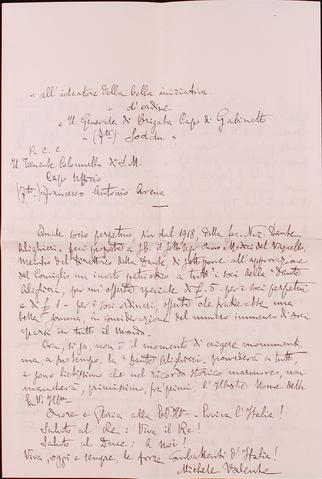 "all'ideatore della bella iniziativa.
" d'ordine
" Il Generale di Brigata Capo di Gabinetto
" (fto) Soddu "
P. C. C.
Il Tenente Colonnello di S.M.
Capo Ufficio
(fto) Francesco Antonio Arena
Quale socio perpetuo, fin dal 1918, della Soc. Naz. Dante
Alighieri, feci proposta a S.E. il
membro del Direttorio della Dante di sottoporre all'approvazione
del Consiglio un invito patriottico a tutti i soci della "Dante
Alighieri, per un'offerta speciale di £. 5 - per i soci perpetui
e di £ 1 - per i soci ordinari, offerta che frutterebbe una
bella somma, in considerazione del numero immenso di soci
sparsi in tutto il Mondo.
Ora, si sa, non è il momento di erigere monumenti,
ma, a suo tempo, la "Dante Alighieri" provvederà a tutti,
e sono lietissimo che nel ricordo storico marmoreo, non
mancherà, primissimo, fra i primi, l'Illustre Nome della
E.V. Ill.ma
Onore e Gloria alla - Evviva l'Italia!
Saluto al Re: Viva il Re!
Saluto al Duce: A noi!
Viva, oggi e sempre, le forze Combattenti d'Italia!
Michele Valente